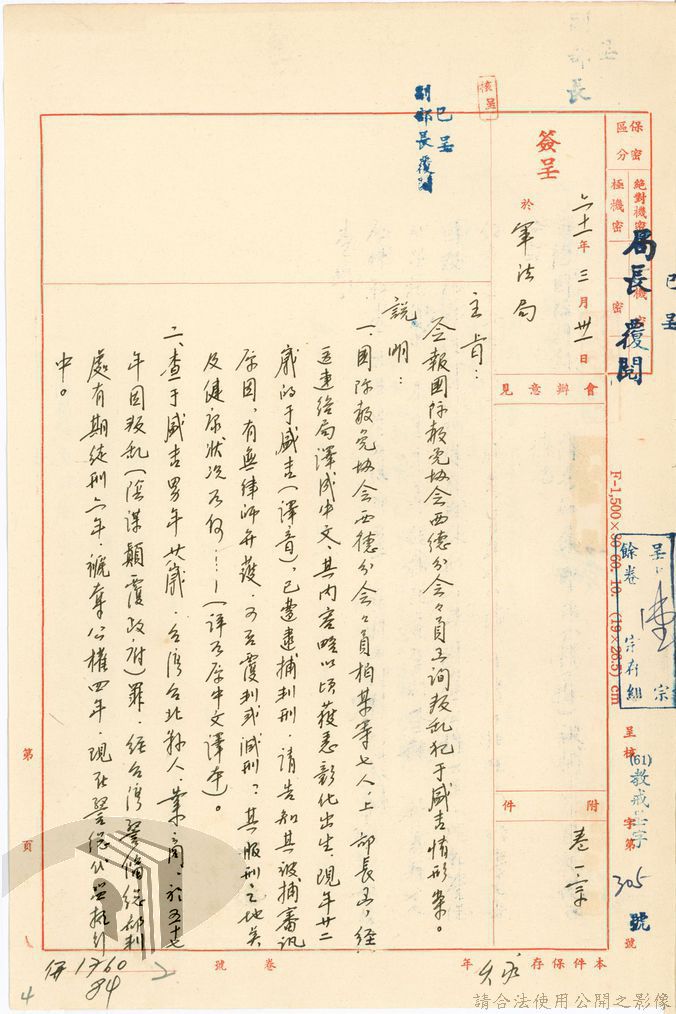 呈
部長
保密區分
絕對機密
極機密
機密
密
已呈
局長覆閱
核呈
已呈
副部長覆閱
簽呈
六十一年三月卅一日
於軍法局
會辦意見
附件
卷一宗
F-1,500×30 60. 10. (19×26.5) cm
餘卷
宗存組
呈核
(61)教戒呈字第305號
號
主旨：
呈報國际赦免协会西德分会々員函詢叛乱犯于盛吉情形案。
說明：
一、國际赦免协会西德分会々員柏某等七人上 部長函，經
送連絡局譯成中文，其內容略以頃獲悉彰化出生，現年廿二
歲的于盛吉（譯音），已遭逮捕判刑，請告知其被捕審訊
原因，有無律師弁護，可否覆判或減刑？其服刑之地点
及健康狀况如何…（詳如原中文譯本）。
二、查于盛吉男年廿歲，台灣台北縣人，業商，於五十七
年因叛乱（陰謀顛覆政府）罪，經台灣警備總部判
處有期徒刑六年，褫奪公權四年，現在警總代監執行
中。
第 頁
本件保存年
永久
卷號
1760
84
4
請合法使用公開之影像